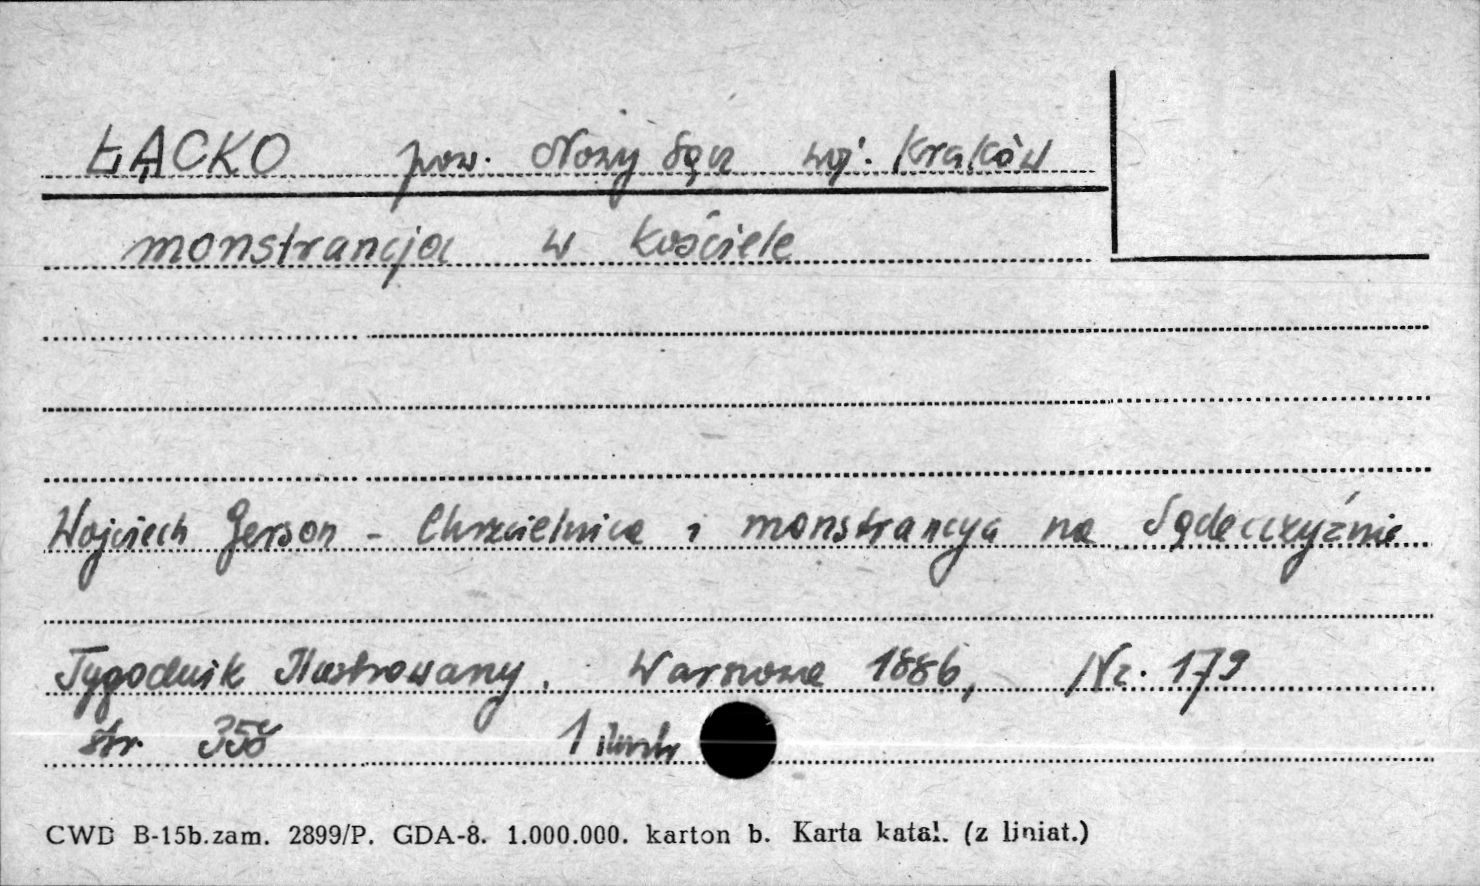 ŁĄCKO pow. Nowy Sącz woj. Kraków
monstrancja w kościele
Wojciech Gerson - Chrzcielnica i monstrancya na Sądecczyźnie
Tygodnik Ilustrowany. Warszawa 1886, Nr. 179
str. 358 1 ilustr.
CWD B-15b.zam. 2899/P. GDA-8. 1.000.000. karton b. Karta katal. (z liniat.)